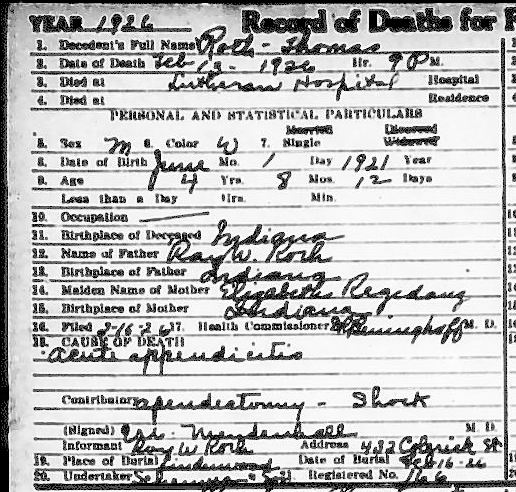 YEAR 1926 Record of Deaths for
1. Decedent's Full Name Roth - Thomas
2. Date of Death Feb 13 - 1926 Hr. 9 P M.
3. Died at Lutheran Hospital Hospital
4. Died at Residence
PERSONAL AND STATISTICAL PARTICULARS
Married Divorced
5. Sex M 6. Color W 7. Single Widowed
8. Date of Birth June Mo. 1 Day 1921 Year
9. Age 4 Yrs. 8 Mos. 12 Days
Less than a Day Hrs. Min.
10. Occupation
11. Birthplace of Deceased Indiana
12. Name of Father Ray W. Roth
13. Birthplace of Father Indiana
14. Maiden Name of Mother Elizabeth
15. Birthplace of Mother Indiana
16. Filed 2-16-26 17. Health Commissioner M. D.
18. CAUSE OF DEATH
Acute appendicitis
Contributory apendectomy - Shock
(Signed) Mendenhall M. D.
Informant Ray W Roth Address 432 St
19. Place of Burial Lindenwood Date of Burial Feb 16-26
20. Undertaker 21. Registered No. 166